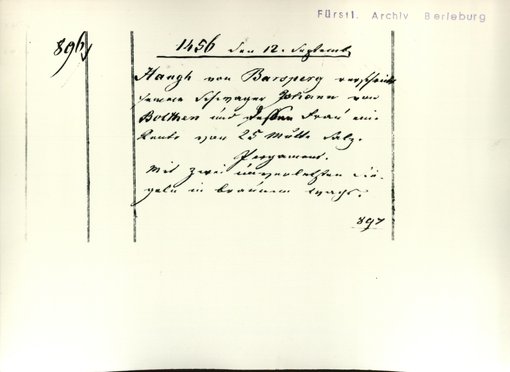 Fürstl. Archiv Berleburg
896
1456 den 12. Septemb
Haugh von Barsperg verschreibt
seinem Schwager Johann von
Bolchen und dessen Frau eine
Rente von 25 Mütte Salz.
Pergament.
Mit zwei unverletzten Sie-
geln in braunem Wachs.
897